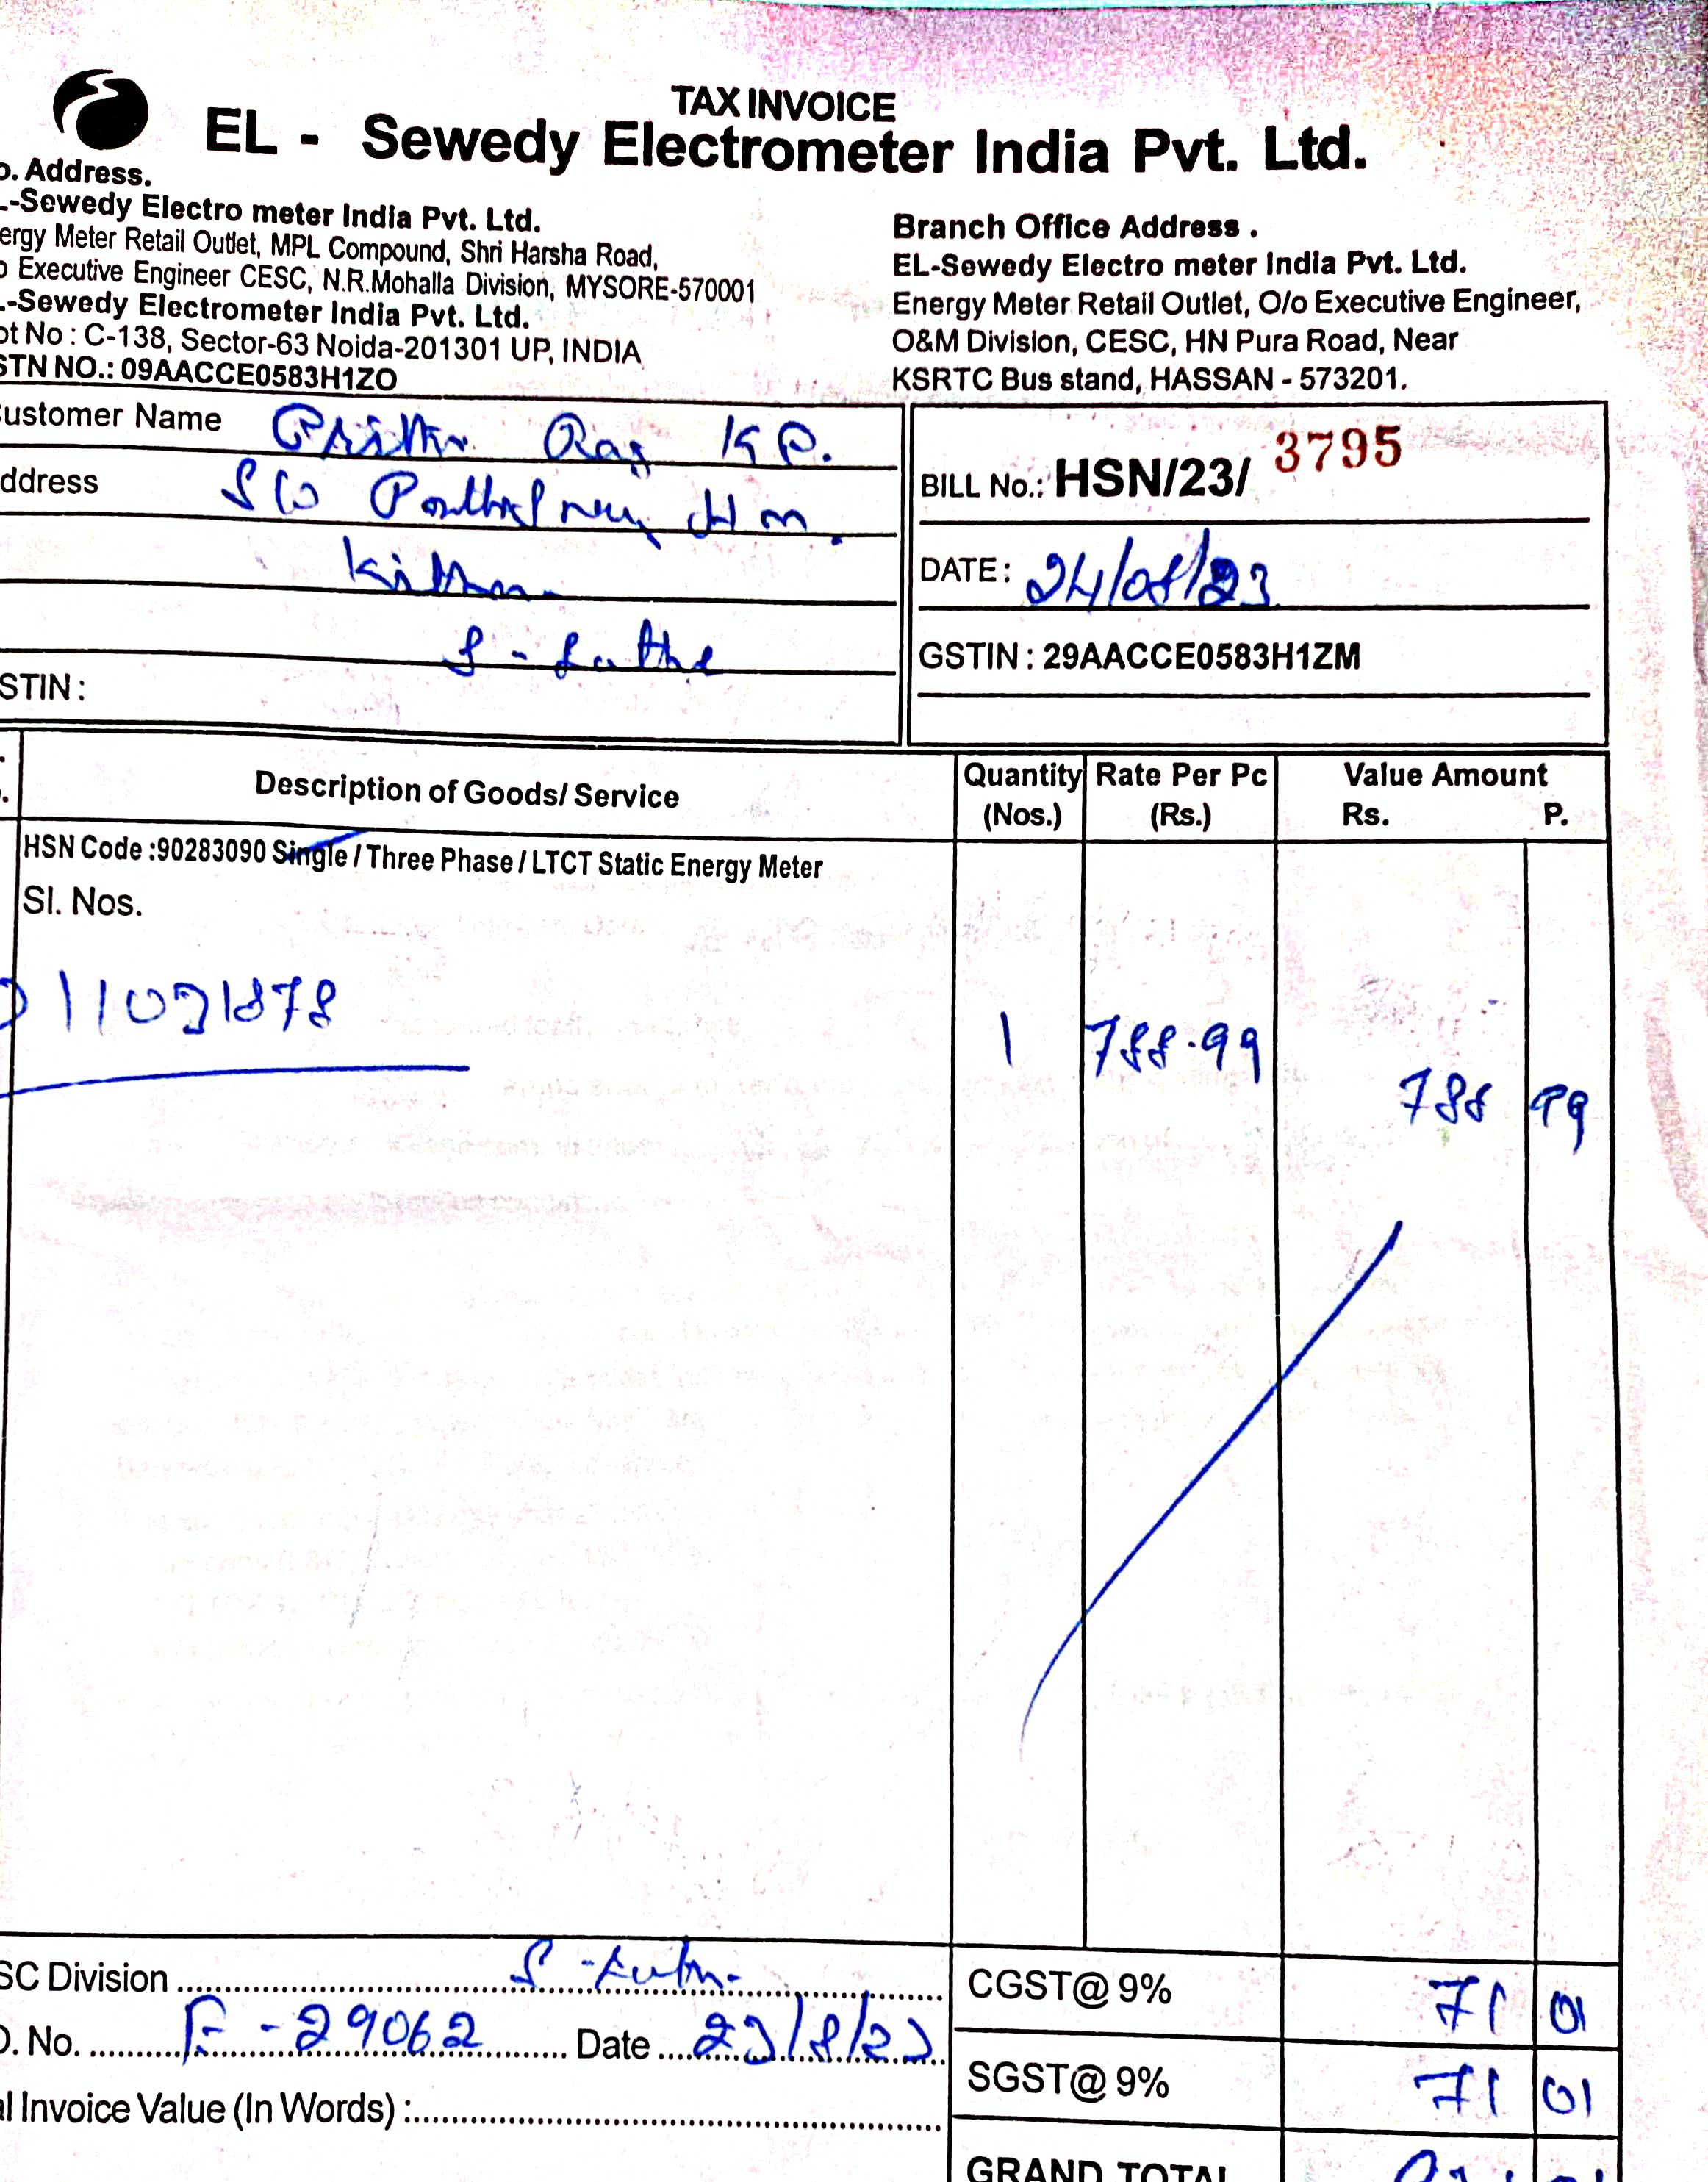 TAX INVOICE
EL - Sewedy Electrometer India Pvt. Ltd.
o. Address.
-Sewedy Electro meter India Pvt. Ltd.
ergy Meter Retail Outlet, MPL Compound, Shri Harsha Road,
o Executive Engineer CESC, N.R.Mohalla Division, MYSORE-570001
-Sewedy Electrometer India Pvt. Ltd.
ot No : C-138, Sector-63 Noida-201301 UP, INDIA
STN NO.: 09AACCE0583H1ZO
Branch Office Address .
EL-Sewedy Electro meter India Pvt. Ltd.
Energy Meter Retail Outlet, O/o Executive Engineer,
O&M Division, CESC, HN Pura Road, Near
KSRTC Bus stand, HASSAN - 573201.
ustomer Name Raj K P.
ddress S/o
STIN :
BILL No.: HSN/23/ 3795
DATE : 24/08/23
GSTIN : 29AACCE0583H1ZM
Description of Goods/ Service Quantity (Nos.) Rate Per Pc (Rs.) Value Amount Rs. P.
HSN Code :90283090 Single / Three Phase / LTCT Static Energy Meter
Sl. Nos.
1 788.99 788 99
SC Division
O. No. Date 23/8/23
al Invoice Value (In Words) :
CGST@ 9% 71 01
SGST@ 9% 71 01
GRAND TOTAL